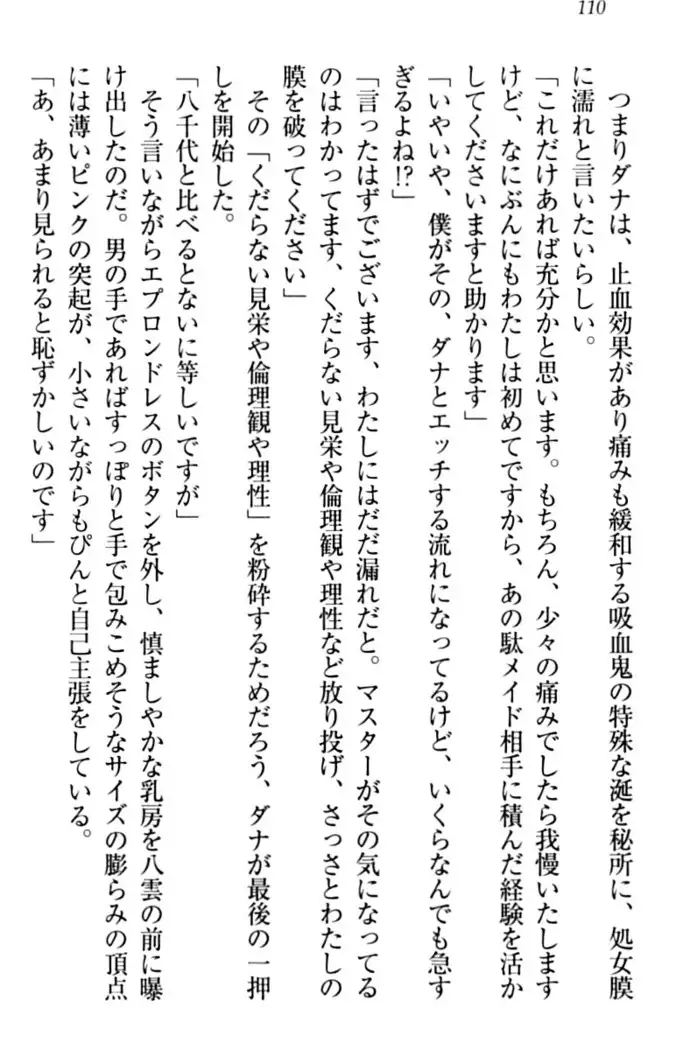 110
つまりダナは、止血効果があり痛みも緩和する吸血鬼の特殊な涎を秘所に、処女膜
に濡れと言いたいらしい。
「これだけあれば充分かと思います。もちろん、少々の痛みでしたら我慢いたします
けど、なにぶんにもわたしは初めてですから、あの駄メイド相手に積んだ経験を活か
してくださいますと助かります」
「いやいや、僕がその、ダナとエッチする流れになってるけど、いくらなんでも急す
ぎるよね!?」
「言ったはずでございます、わたしにはだだ漏れだと。マスターがその気になってる
のはわかってます、くだらない見栄や倫理観や理性など放り投げ、さっさとわたしの
膜を破ってください」
その「くだらない見栄や倫理観や理性」を粉砕するためだろう、ダナが最後の一押
しを開始した。
「八千代と比べるとないに等しいですが」
そう言いながらエプロンドレスのボタンを外し、慎ましやかな乳房を八雲の前に曝
け出したのだ。男の手であればすっぽりと手で包みこめそうなサイズの膨らみの頂点
には薄いピンクの突起が、小さいながらもぴんと自己主張をしている。
「あ、あまり見られると恥ずかしいのです」